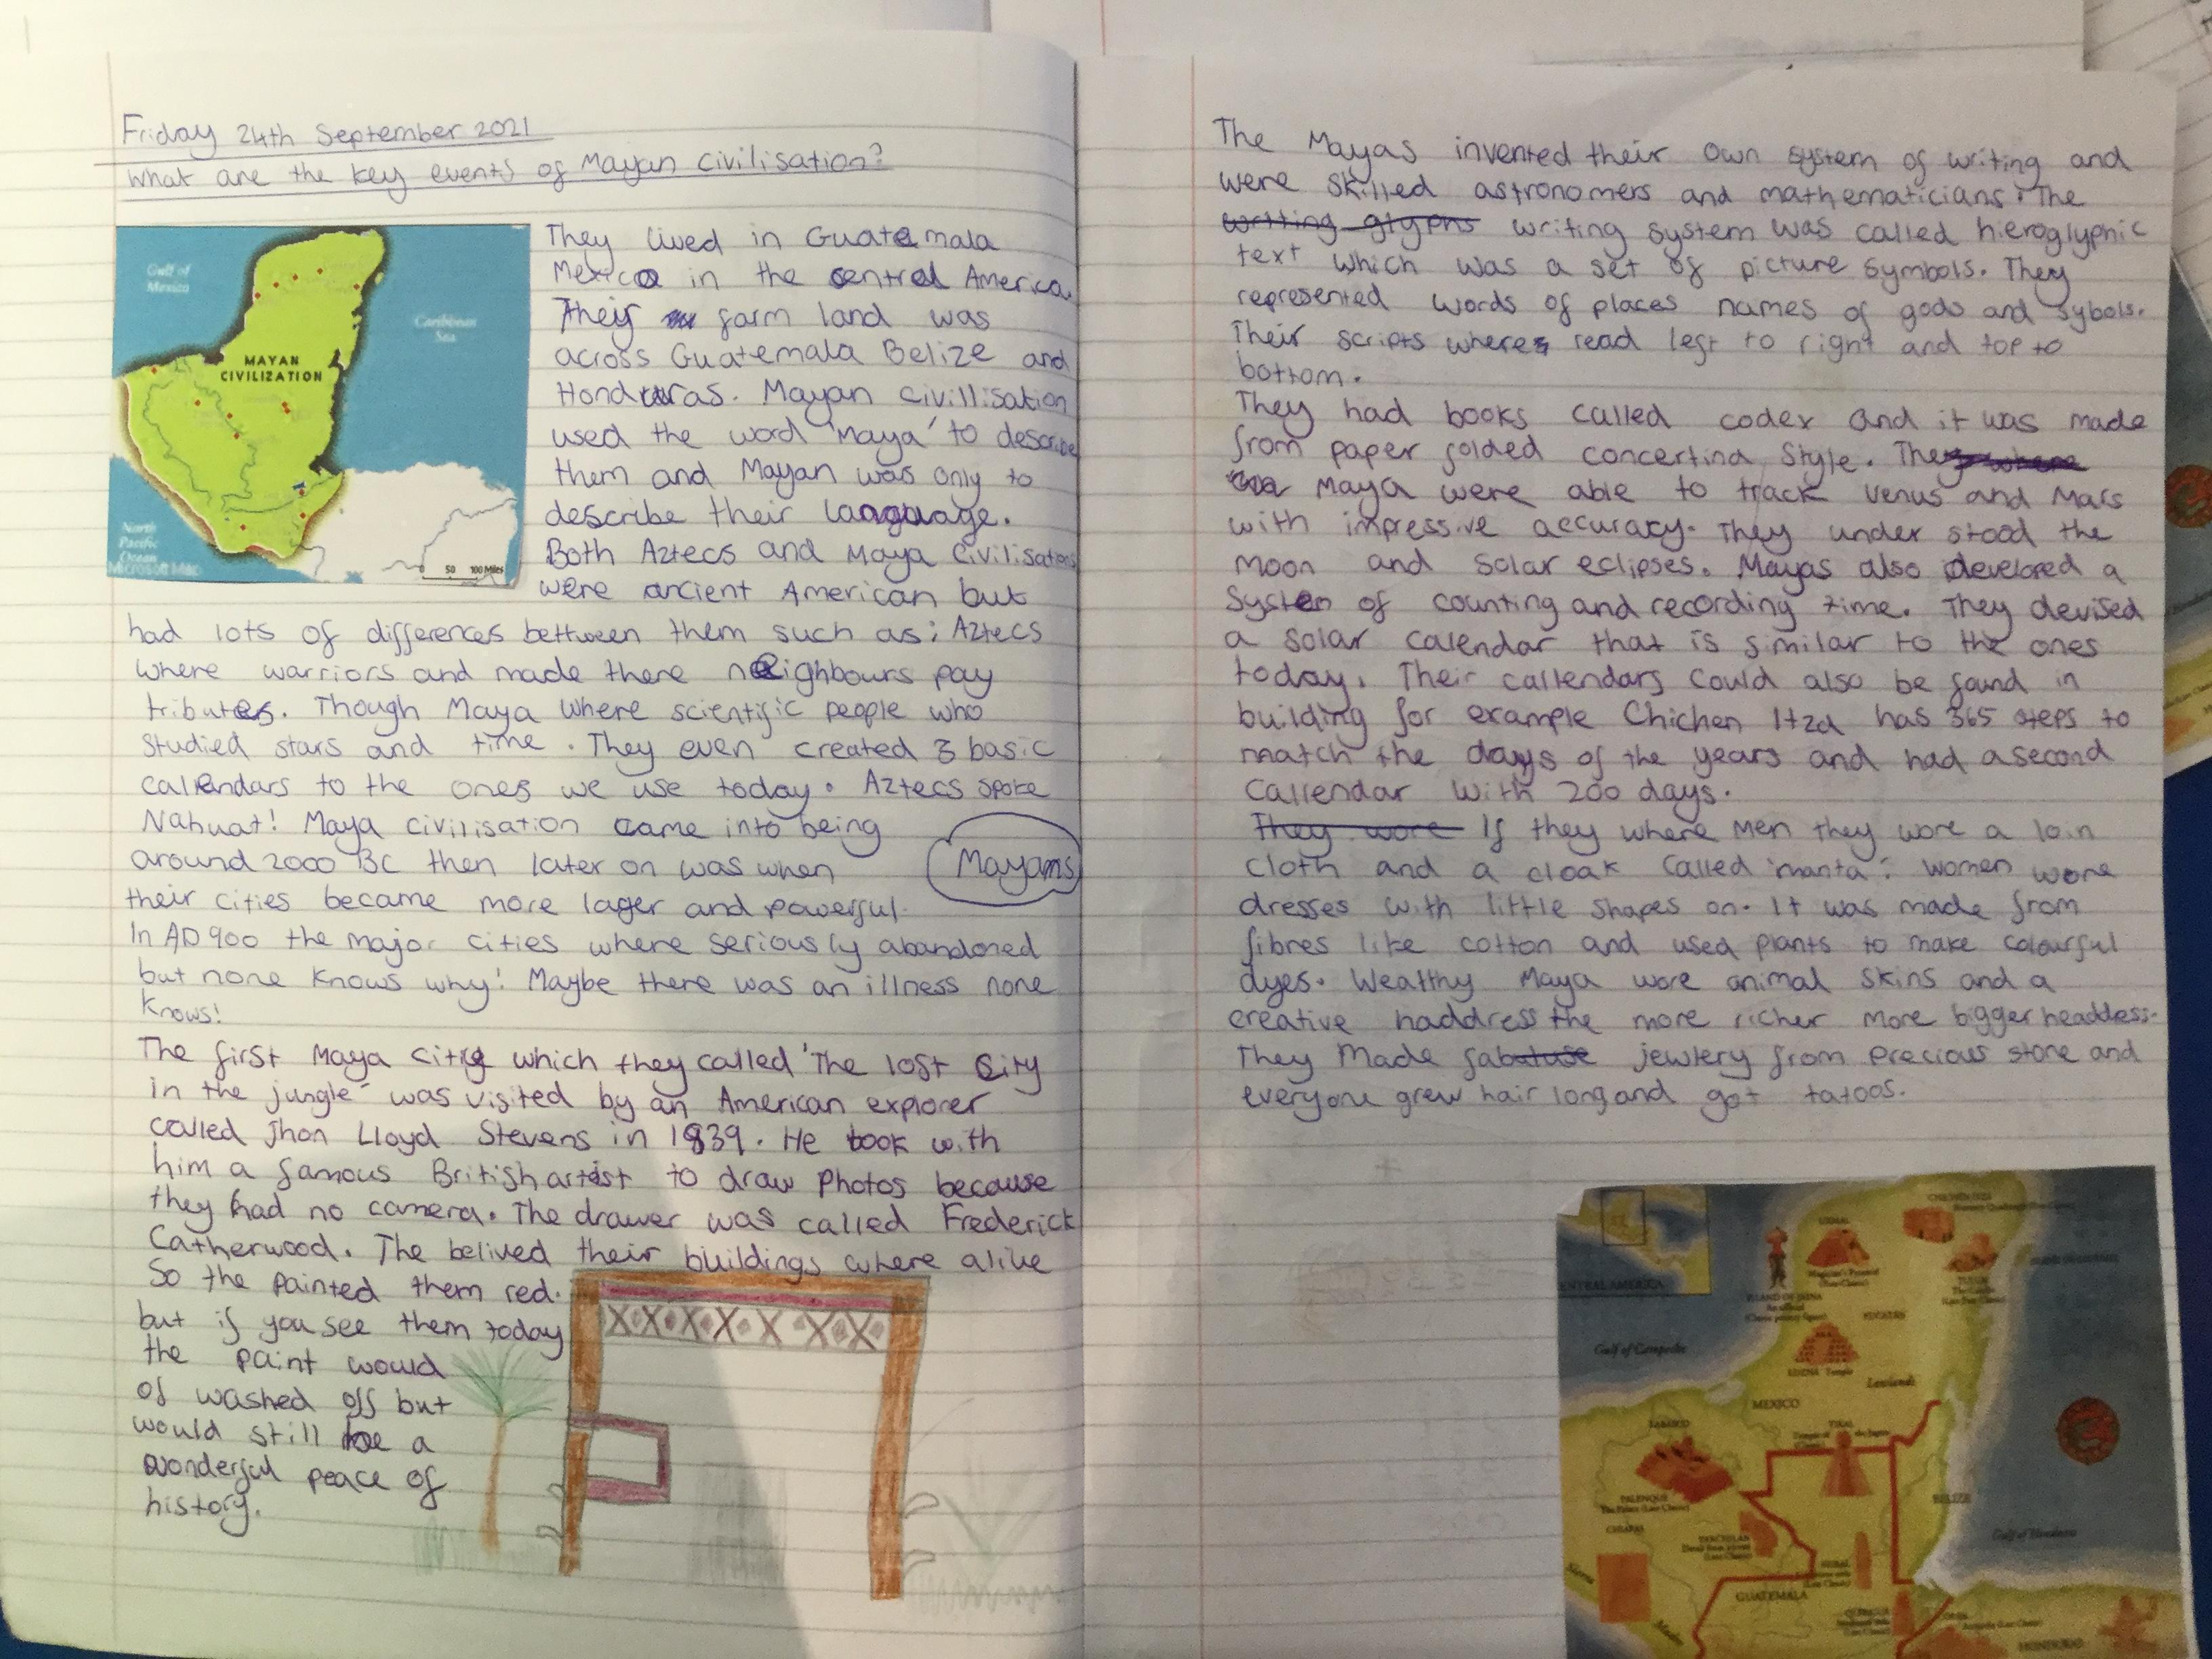 Friday 24th September 2021
What are the key events of Mayan civilisation?
Gulf of
Mexico
Caribbean
Sea
MAYAN
CIVILIZATION
North
Pacific
Ocean
50 100 Miles
They lived in Guatemala
Mexico in the central America.
Their farm land was
across Guatemala Belize and
Honduras. Mayan civillisation
used the word 'Maya' to describe
them and Mayan was only to
describe their language.
Both Aztecs and Maya civilisations
were ancient American but
had lots of differences bettween them such as: Aztecs
where warriors and made there neighbours pay
tributes. Though Maya where scientific people who
studied stars and time. They even created 3 basic
callendars to the ones we use today. Aztecs spoke
Nahuat! Maya civilisation came into being
around 2000 BC then later on was when
Mayans
their cities became more lager and powerful.
In AD 900 the major cities where seriously abandoned
but none knows why! Maybe there was an illness none
knows!
The first Maya citie which they called 'The lost city
in the jungle' was visited by an American explorer
called Jhon Lloyd Stevens in 1839. He took with
him a famous British artist to draw photos because
they had no camera. The drawer was called Frederick
Catherwood. The belived their buildings where alive
So the painted them red.
but if you see them today
the paint would
of washed off but
would still be a
wonderful peace of
history.
The Mayas invented their own system of writing and
were skilled astronomers and mathematicians. The
writing glyphs writing system was called hieroglyphic
text which was a set of picture symbols. They
represented words of places names of gods and sybols.
Their scripts where read left to right and top to
bottom.
They had books called codex and it was made
from paper folded concertina style. They where
Maya were able to track Venus and Mars
with impressive accuracy. They under stood the
moon and solar eclipses. Mayas also developed a
System of counting and recording time. They devised
a solar calendar that is similar to the ones
today. Their callendars could also be found in
building for example Chichen Itza has 365 steps to
match the days of the years and had a second
callendar with 200 days.
They wore If they where men they wore a loin
cloth and a cloak called 'manta'. women wore
dresses with little shapes on. It was made from
fibres like cotton and used plants to make colourful
dyes. Wealthy Maya wore animal skins and a
creative haddress the more richer more bigger headdess.
They made jewlery from precious stone and
everyone grew hair long and got tatoos.
CENTRAL AMERICA
Gulf of Campeche
YUCATÁN
MEXICO
Lowlands
TABASCO
TIKAL
PALENQUE
CHIAPAS
BELIZE
Gulf of Honduras
GUATEMALA
HONDURAS